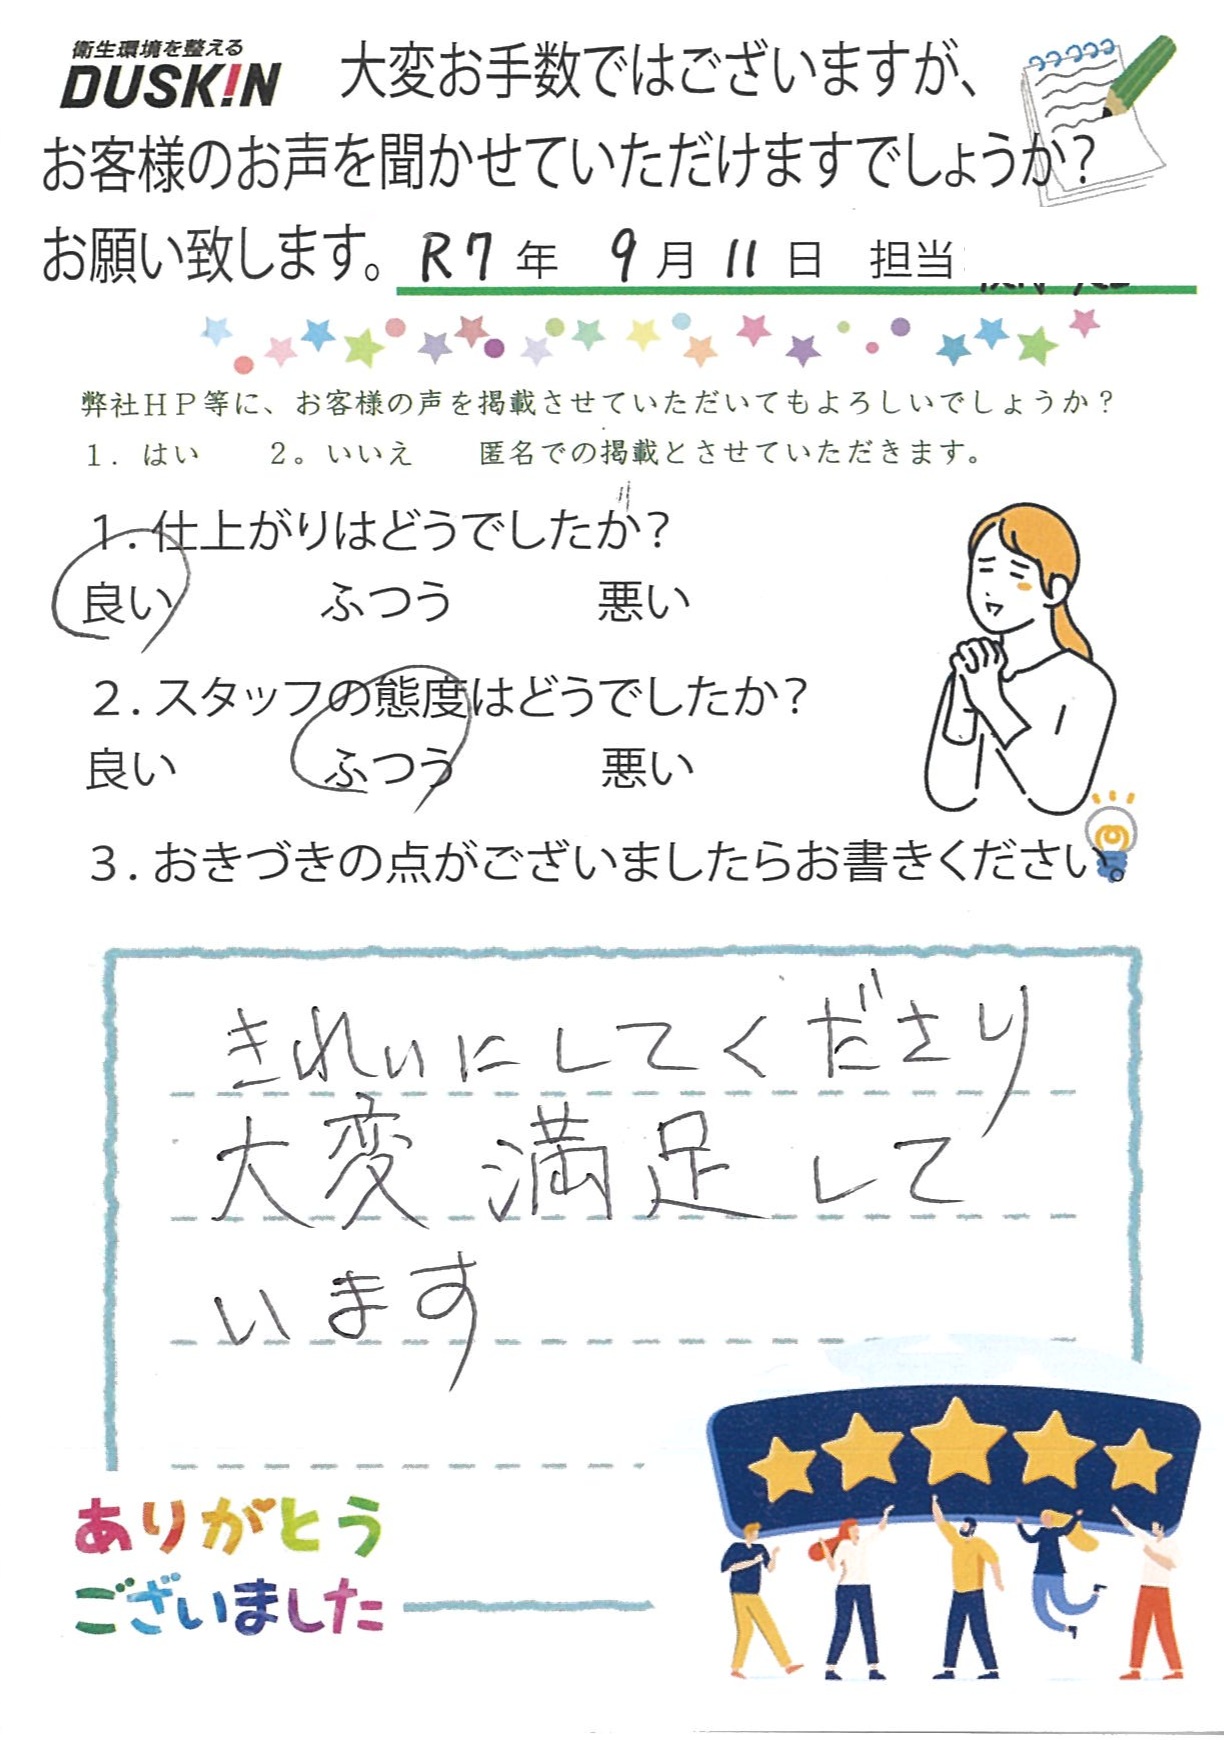 衛生環境を整える
DUSKIN
大変お手数ではございますが、
お客様のお声を聞かせていただけますでしょうか？
お願い致します。 R7年 9月11日 担当
弊社HP等に、お客様の声を掲載させていただいてもよろしいでしょうか？
１．はい ２。いいえ 匿名での掲載とさせていただきます。
１．仕上がりはどうでしたか？
良い ふつう 悪い
２．スタッフの態度はどうでしたか？
良い ふつう 悪い
３．おきづきの点がございましたらお書きください。
きれいにしてくださり
大変満足して
います
ありがとう
ございました